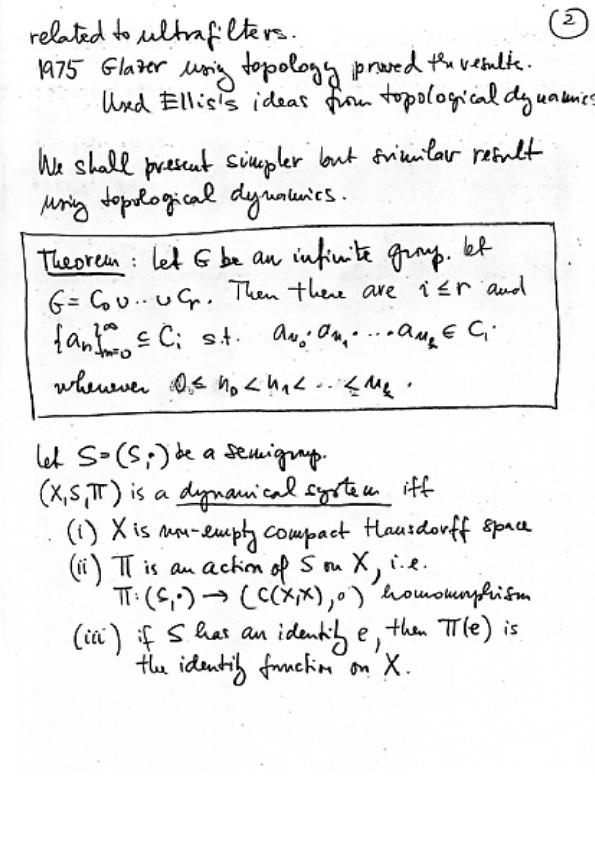 ②
related to ultrafilters.
1975 Glazer using topology proved the results.
Used Ellis's ideas from topological dynamics
We shall present simpler but similar result
using topological dynamics.
Theorem : let G be an infinite group. let
G = C₀ ∪ ·· ∪ Cᵣ. Then there are i ≤ r and
{aₙ}ₙ₌₀^∞ ⊆ Cᵢ s.t. aₙ₀ · aₙ₁ · ... · aₙₖ ∈ Cᵢ
whenever 0 ≤ n₀ < n₁ < ·· ≤ nₖ .
let S = (S, ·) be a semigroup.
(X, S, π) is a dynamical system iff
(i) X is non-empty compact Hausdorff space
(ii) π is an action of S on X, i.e.
π : (S, ·) → (C(X,X), ∘) homomorphism
(iii) if S has an identity e, then π(e) is
the identity function on X.